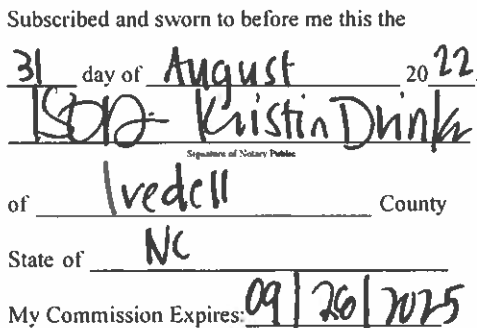 Subscribed and sworn to before me this the
31 day of August 2022
Kristin Drinkr
Signature of Notary Public
of Iredell County
State of NC
My Commission Expires: 09/26/2025